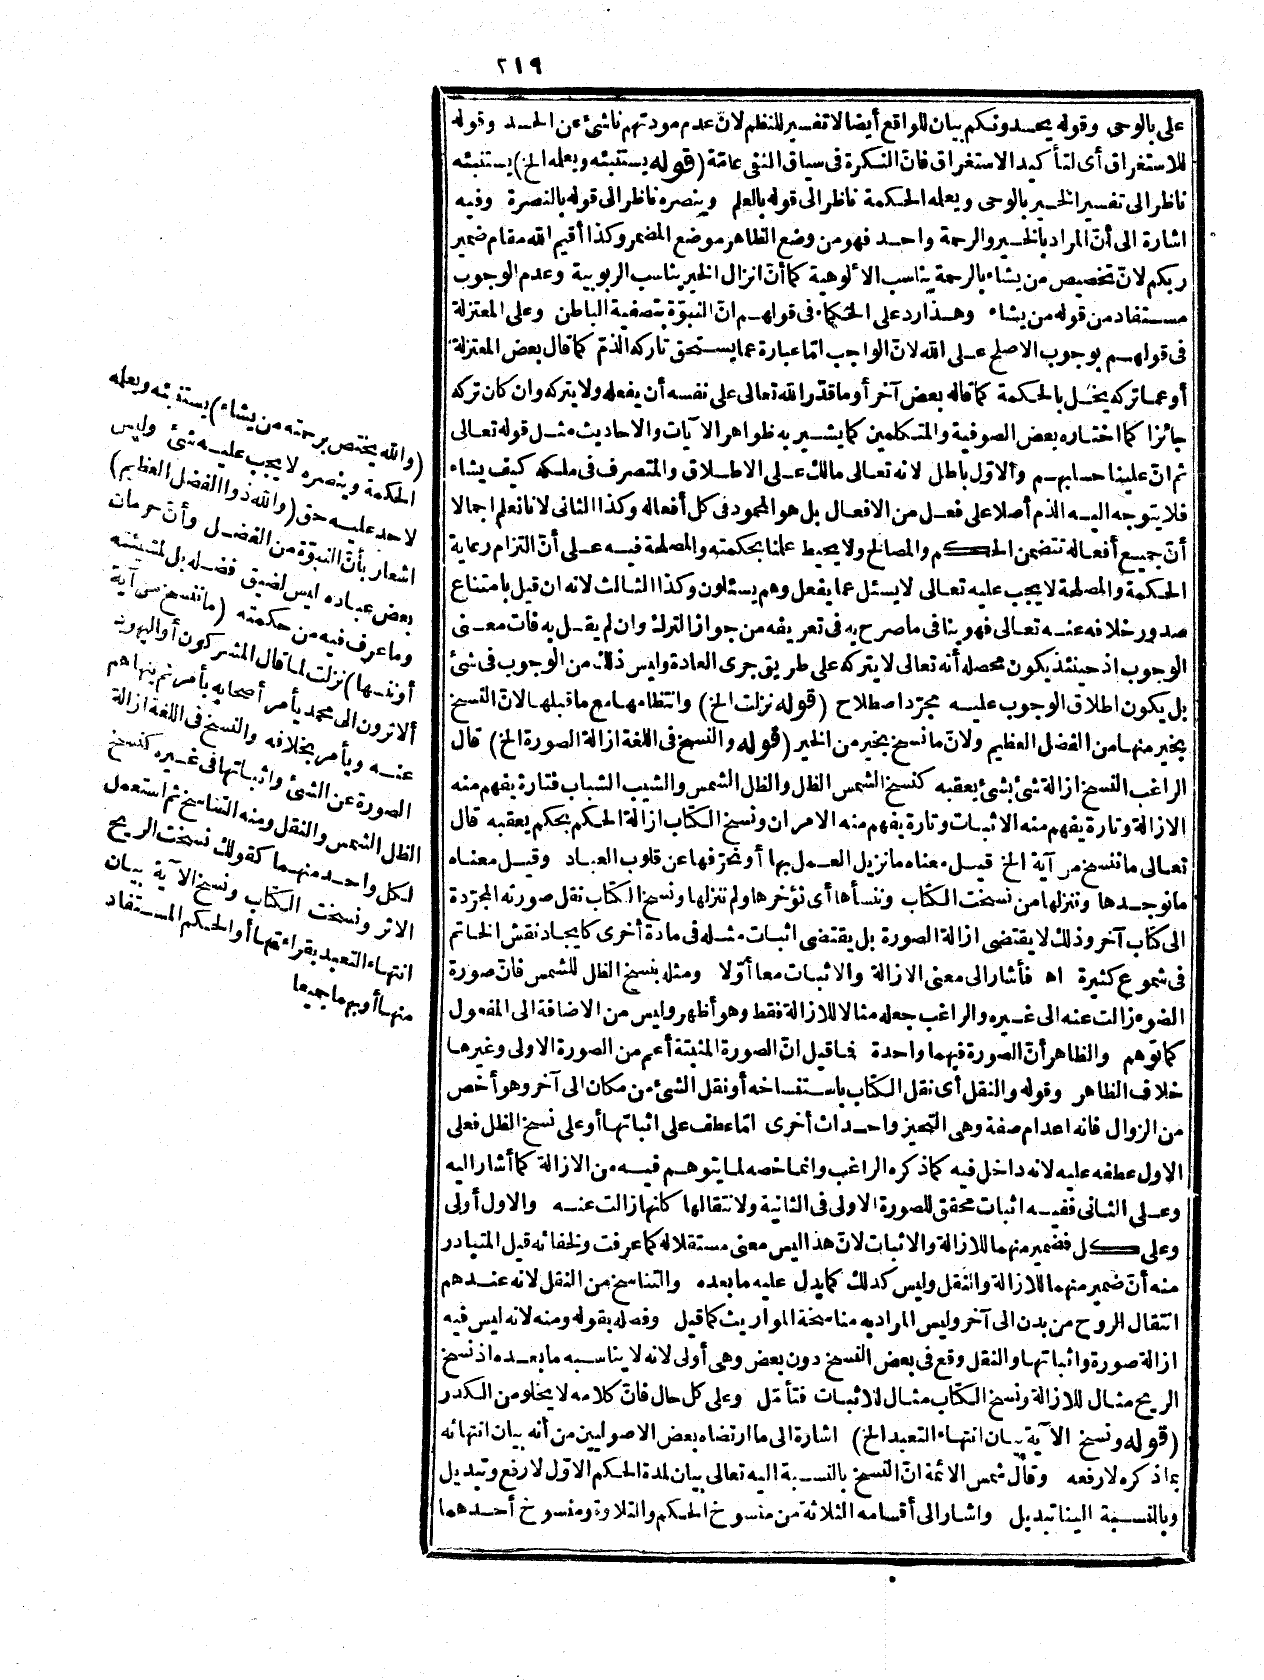 ٢١٩
على بالوحى وقوله يحسدونكم بيان للواقع أيضا لا تفسير للنظم لانّ عدم مودتهم ناشئ عن الحسد وقوله
للاستغراق أى لتأكيد الاستغراق فانّ النكرة فى سياق النفى عامّة (قوله يستنبئه ويعلمه الخ) يستنبئه
ناظر الى تفسير الخير بالوحى ويعلمه الحكمة ناظر الى قوله بالعلم وينصره ناظر الى قوله بالنصرة وفيه
اشارة الى أنّ المراد بالخير والرحمة واحد فهو من وضع الظاهر موضع المضمر وكذا أقيم الله مقام ضمير
ربكم لانّ تخصيص من يشاء بالرحمة يناسب الالوهية كما أنّ انزال الخير يناسب الربوبية وعدم الوجوب
مستفاد من قوله من يشاء وهذا رد على الحكماء فى قولهم انّ النبوّة بتصفية الباطن وعلى المعتزلة
فى قولهم بوجوب الاصلح على الله لانّ الواجب امّا عبارة عما يستحق تاركه الذمّ كما قال بعض المعتزلة
أو عما تركه يخل بالحكمة كما قاله بعض آخر أو ما قدّر الله تعالى على نفسه أن يفعله ولا يتركه وان كان تركه
جائزا كما اختاره بعض الصوفية والمتكلمين كما يشير به ظواهر الآيات والاحاديث مثل قوله تعالى
ثم انّ علينا حسابهم والاول باطل لانه تعالى مالك على الاطلاق والمتصرف فى ملكه كيف يشاء
فلا يتوجه اليه الذم أصلا على فعل من الافعال بل هو المحمود فى كل أفعاله وكذا الثانى لانا نعلم اجمالا
أنّ جميع أفعاله تتضمن الحكم والمصالح ولا يحيط علمنا بحكمته والمصلحة فيه على أنّ التزام رعاية
الحكمة والمصلحة لا يجب عليه تعالى لا يسئل عما يفعل وهم يسئلون وكذا الثالث لانه ان قيل بامتناع
صدور خلافه عنه تعالى فهو ينافى ما صرح به فى تعريفه من جواز الترك وان لم يقل به فات معنى
الوجوب اذ حينئذ يكون محصله أنه تعالى لا يتركه على طريق جرى العادة وليس ذلك من الوجوب فى شئ
بل يكون اطلاق الوجوب عليه مجرّد اصطلاح (قوله نزلت الخ) وانتظامها مع ما قبلها لانّ النسخ
بخير منها من الفضل العظيم ولانّ ما نسخ بخير من الخير (قوله والنسخ فى اللغة ازالة الصورة الخ) قال
الراغب النسخ ازالة شئ بشئ يعقبه كنسخ الشمس الظل والظل الشمس والشيب الشباب فتارة يفهم منه
الازالة وتارة يفهم منه الاثبات وتارة يفهم منه الامران ونسخ الكتاب ازالة الحكم بحكم يعقبه قال
تعالى ما ننسخ من آية الخ قيل معناه ما نزيل العمل بها أو نحرّفها عن قلوب العباد وقيل معناه
ما نوجدها وننزلها من نسخت الكتاب وننسأها أى نؤخرها ولم ننزلها ونسخ الكتاب نقل صورته المجرّدة
الى كتاب آخر وذلك لا يقتضى ازالة الصورة بل يقتضى اثبات مثله فى مادة أخرى كايجاد نقش الخاتم
فى شموع كثيرة اه فأشار الى معنى الازالة والاثبات معا أوّلا ومثله بنسخ الظل للشمس فانّ صورة
الضوء زالت عنه الى غيره والراغب جعله مثالا للازالة فقط وهو أظهر وليس من الاضافة الى المفعول
كما توهم والظاهر أنّ الصورة فيهما واحدة فما قيل انّ الصورة المثبتة أعم من الصورة الاولى وغيرها
خلاف الظاهر وقوله والنقل أى نقل الكتاب باستنساخه أو نقل الشئ من مكان الى آخر وهو أخص
من الزوال فانه اعدام صفة وهى التحيز واحداث أخرى امّا عطف على اثباتها أو على نسخ الظل فعلى
الاول عطفه عليه لانه داخل فيه كما ذكره الراغب وانما خصه لما يتوهم فيه من الازالة كما أشار اليه
وعلى الثانى ففيه اثبات محقق للصورة الاولى فى الثانية ولانتقالها كانها زالت عنه والاول أولى
وعلى كل فضمير منهما للازالة والاثبات لانّ هذا ليس معنى مستقلا له كما عرفت ولخفائه قيل المتبادر
منه أنّ ضمير منهما للازالة والنقل وليس كذلك كما يدل عليه ما بعده والتناسخ من النقل لانه عندهم
انتقال الروح من بدن الى آخر وليس المراد به مناسخة المواريث كما قيل وفصله بقوله ومنه لانه ليس فيه
ازالة صورة واثباتها والنقل وقع فى بعض النسخ دون بعض وهى أولى لانه لا يناسبه ما بعده اذ نسخ
الريح مثال للازالة ونسخ الكتاب مثال للاثبات فتأمّل وعلى كل حال فانّ كلامه لا يخلو من الكدر
(قوله ونسخ الآية بيان انتهاء التعبد الخ) اشارة الى ما ارتضاه بعض الاصوليين من أنه بيان انتهائه
بما ذكره لا رفعه وقال شمس الائمة انّ النسخ بالنسبة اليه تعالى بيان لمدة الحكم الاوّل لا رفع وتبديل
وبالنسبة الينا تبديل واشار الى أقسامه الثلاثة من منسوخ الحكم والتلاوة ومنسوخ أحدهما
(والله يختص برحمته من يشاء) يستنبئه ويعلمه
الحكمة وينصره لا يجب عليه شئ وليس
لاحد عليه حق (والله ذو الفضل العظيم)
اشعار بأنّ النبوّة من الفضل وأنّ حرمان
بعض عباده ليس لضيق فضله بل لمشيئته
وما عرف فيه من حكمته (ما ننسخ من آية
أو ننسها) نزلت لما قال المشركون أو اليهود
ألا ترون الى محمد يأمر أصحابه بأمر ثم ينهاهم
عنه ويأمر بخلافه والنسخ فى اللغة ازالة
الصورة عن الشئ واثباتها فى غيره كنسخ
الظل الشمس والنقل ومنه التناسخ ثم استعمل
لكل واحد منهما كقولك نسخت الريح
الاثر ونسخت الكتاب ونسخ الآية بيان
انتهاء التعبد بقراءتها أو الحكم المستفاد
منها أو بهما جميعا